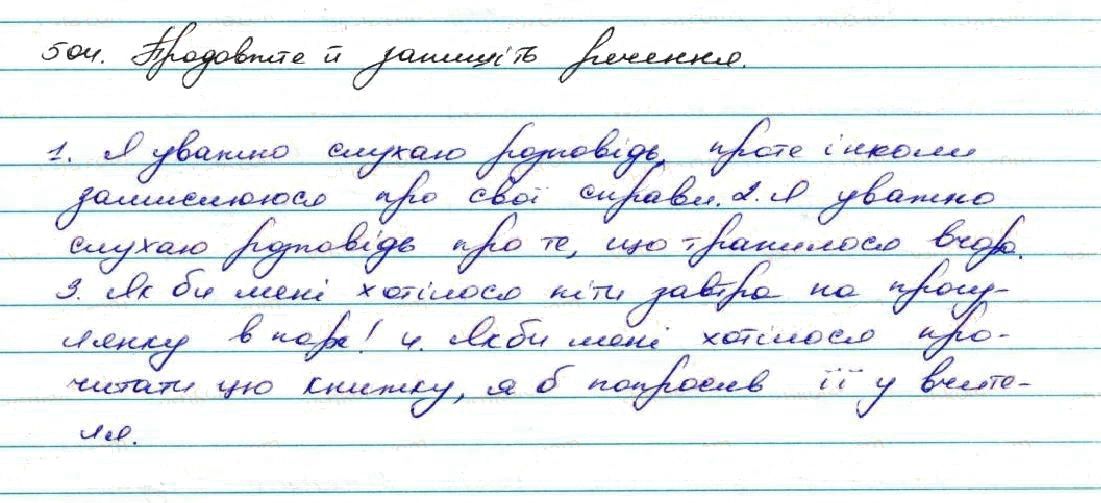 504. Продовжте й запишіть речення.
1. Я уважно слухаю розповідь, проте інколи
замислююся про свої справи. 2. Я уважно
слухаю розповідь про те, що трапилося вчора.
3. Як би мені хотілося піти завтра на прогу-
лянку в парк! 4. Якби мені хотілося про-
читати цю книжку, я б попросив її у вчите-
ля.